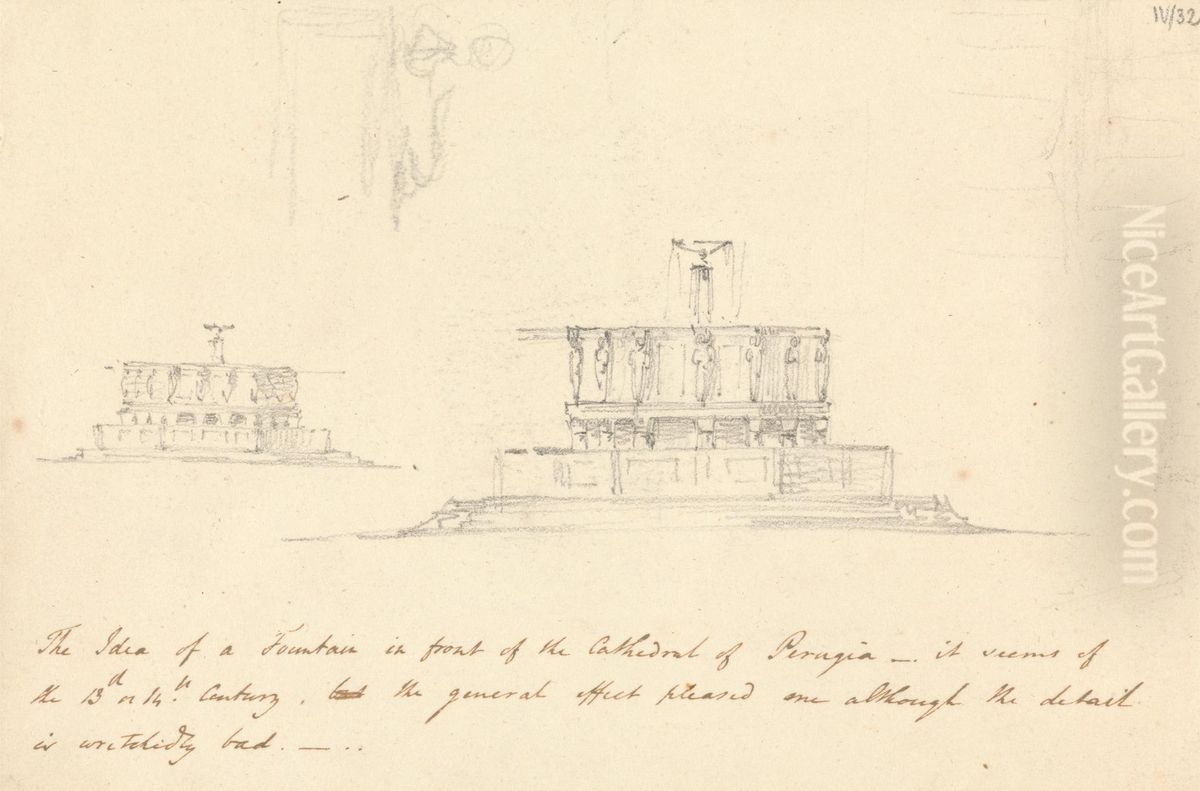 IV/32
The Idea of a Fountain in front of the Cathedral of Perugia — it seems of
the 13th or 14th Century, but the general effect pleased me although the detail
is wretchedly bad. — ..
NiceArtGallery.com